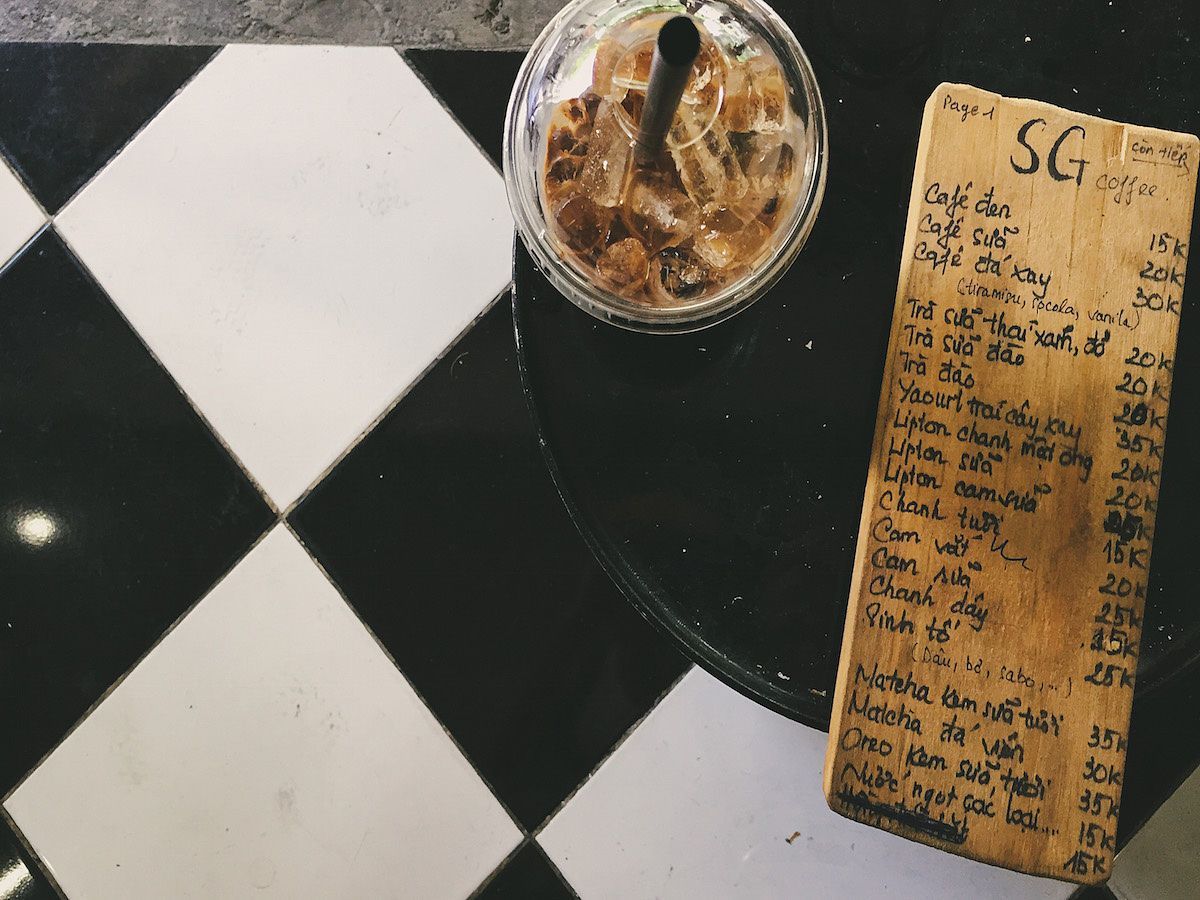 Page 1
SG
còn tiếp
coffee
Café đen 15K
Café sữa 20K
Café đá xay 30K
(tiramisu, socola, vanila)
Trà sữa thái xanh, đỏ 20K
Trà sữa đào 20K
Trà đào 20K
Yaourt trái cây xay 35K
Lipton chanh mật ong 20K
Lipton sữa 20K
Lipton cam sữa 25K
Chanh tươi 15K
Cam vắt 20K
Cam sữa 25K
Chanh dây 15K
Sinh tố 25K
(Dâu, bơ, sabo,...)
Matcha kem sữa tươi 35K
Matcha đá viên 30K
Oreo kem sữa tươi 35K
Nước ngọt các loại... 15K
15K